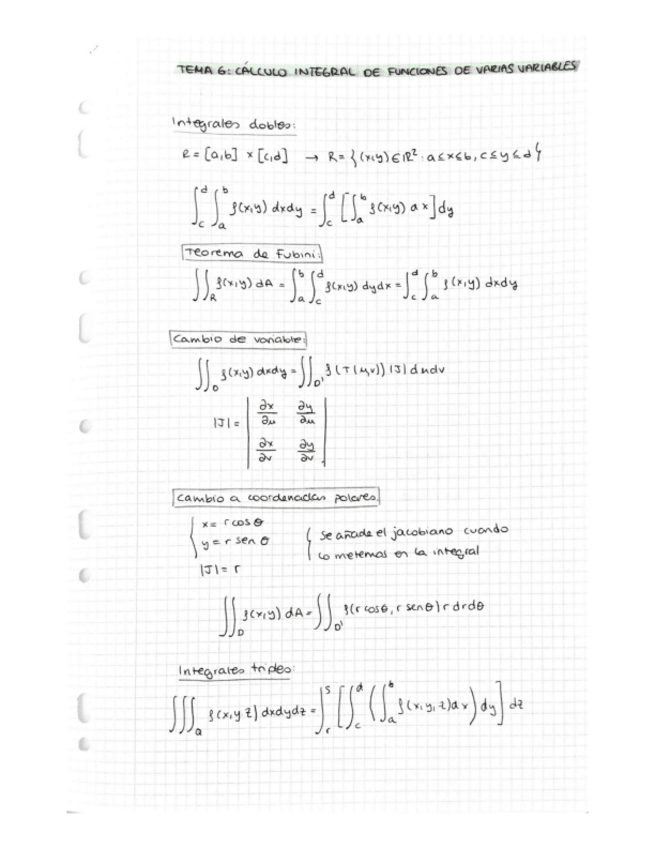 TEMA 6: CÁLCULO INTEGRAL DE FUNCIONES DE VARIAS VARIABLES
Integrales dobles:
R = [a,b] × [c,d] → R = {(x,y) ∈ ℝ² : a ≤ x ≤ b, c ≤ y ≤ d}
∫_c^d ∫_a^b f(x,y) dxdy = ∫_c^d [∫_a^b f(x,y) dx] dy
Teorema de Fubini:
∬_R f(x,y) dA = ∫_a^b ∫_c^d f(x,y) dydx = ∫_c^d ∫_a^b f(x,y) dxdy
Cambio de variable:
∬_D f(x,y) dxdy = ∬_D' f(T(u,v)) |J| dudv
|J| = | ∂x/∂u ∂y/∂u |
| ∂x/∂v ∂y/∂v |
Cambio a coordenadas polares
x = r cos θ
y = r sen θ
|J| = r
se añade el jacobiano cuando
lo metemos en la integral
∬_D f(x,y) dA = ∬_D' f(r cos θ, r sen θ) r dr dθ
Integrales triples:
∭_a f(x,y z) dxdydz = ∫_r^s [∫_c^d (∫_a^b f(x,y,z) dx) dy] dz